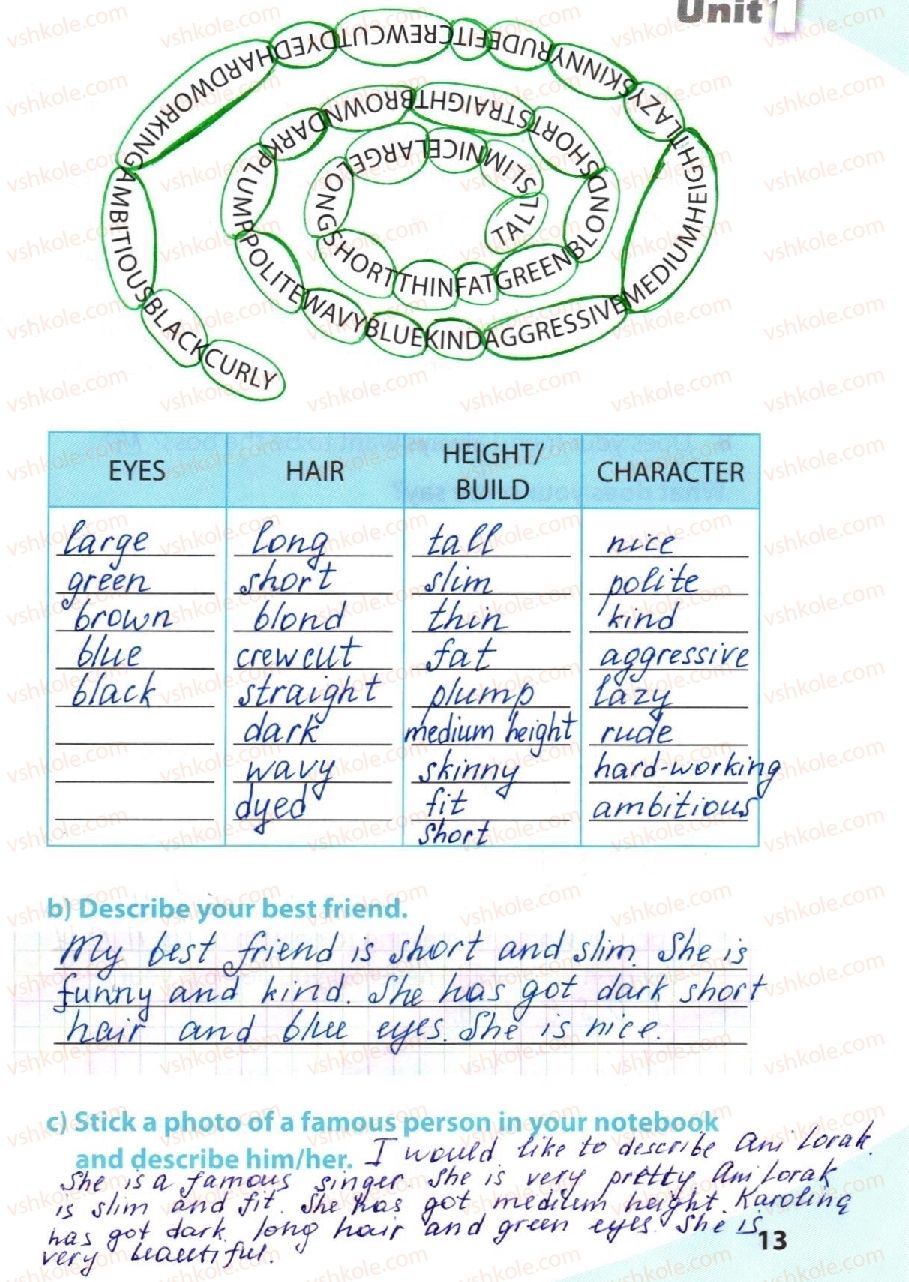 Unit 1
TALLSLIMNICELARGELONGSHORTTHINFATGREENBLONDSHORTSTRAIGHTBROWNDARKPLUMPPOLITEWAVYBLUEKINDAGGRESSIVEMEDIUMHEIGHTLAZYSKINNYRUDEFITCREWCUTDYEDHARDWORKINGAMBITIOUSBLACKCURLY
EYES HAIR HEIGHT/BUILD CHARACTER
large long tall nice
green short slim polite
brown blond thin kind
blue crew cut fat aggressive
black straight plump lazy
dark medium height rude
wavy skinny hard-working
dyed fit ambitious
short
b) Describe your best friend.
My best friend is short and slim. She is
funny and kind. She has got dark short
hair and blue eyes. She is nice.
c) Stick a photo of a famous person in your notebook
and describe him/her. I would like to describe Ani Lorak.
She is a famous singer. She is very pretty. Ani Lorak
is slim and fit. She has got medium height. Karolina
has got dark long hair and green eyes. She is
very beautiful.
13
vshkole.com